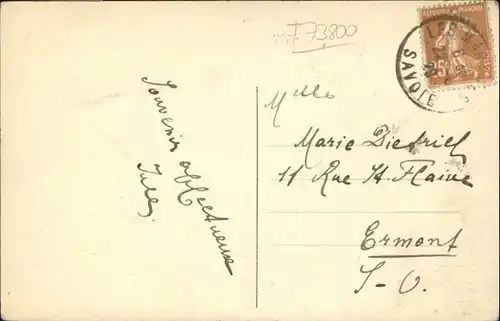 F 73800
LES MAR
SAVOIE
25c
Souvenir affectueux
Mlle
Marie Dietrich
11 Rue St Flaive
Ermont
S-O.